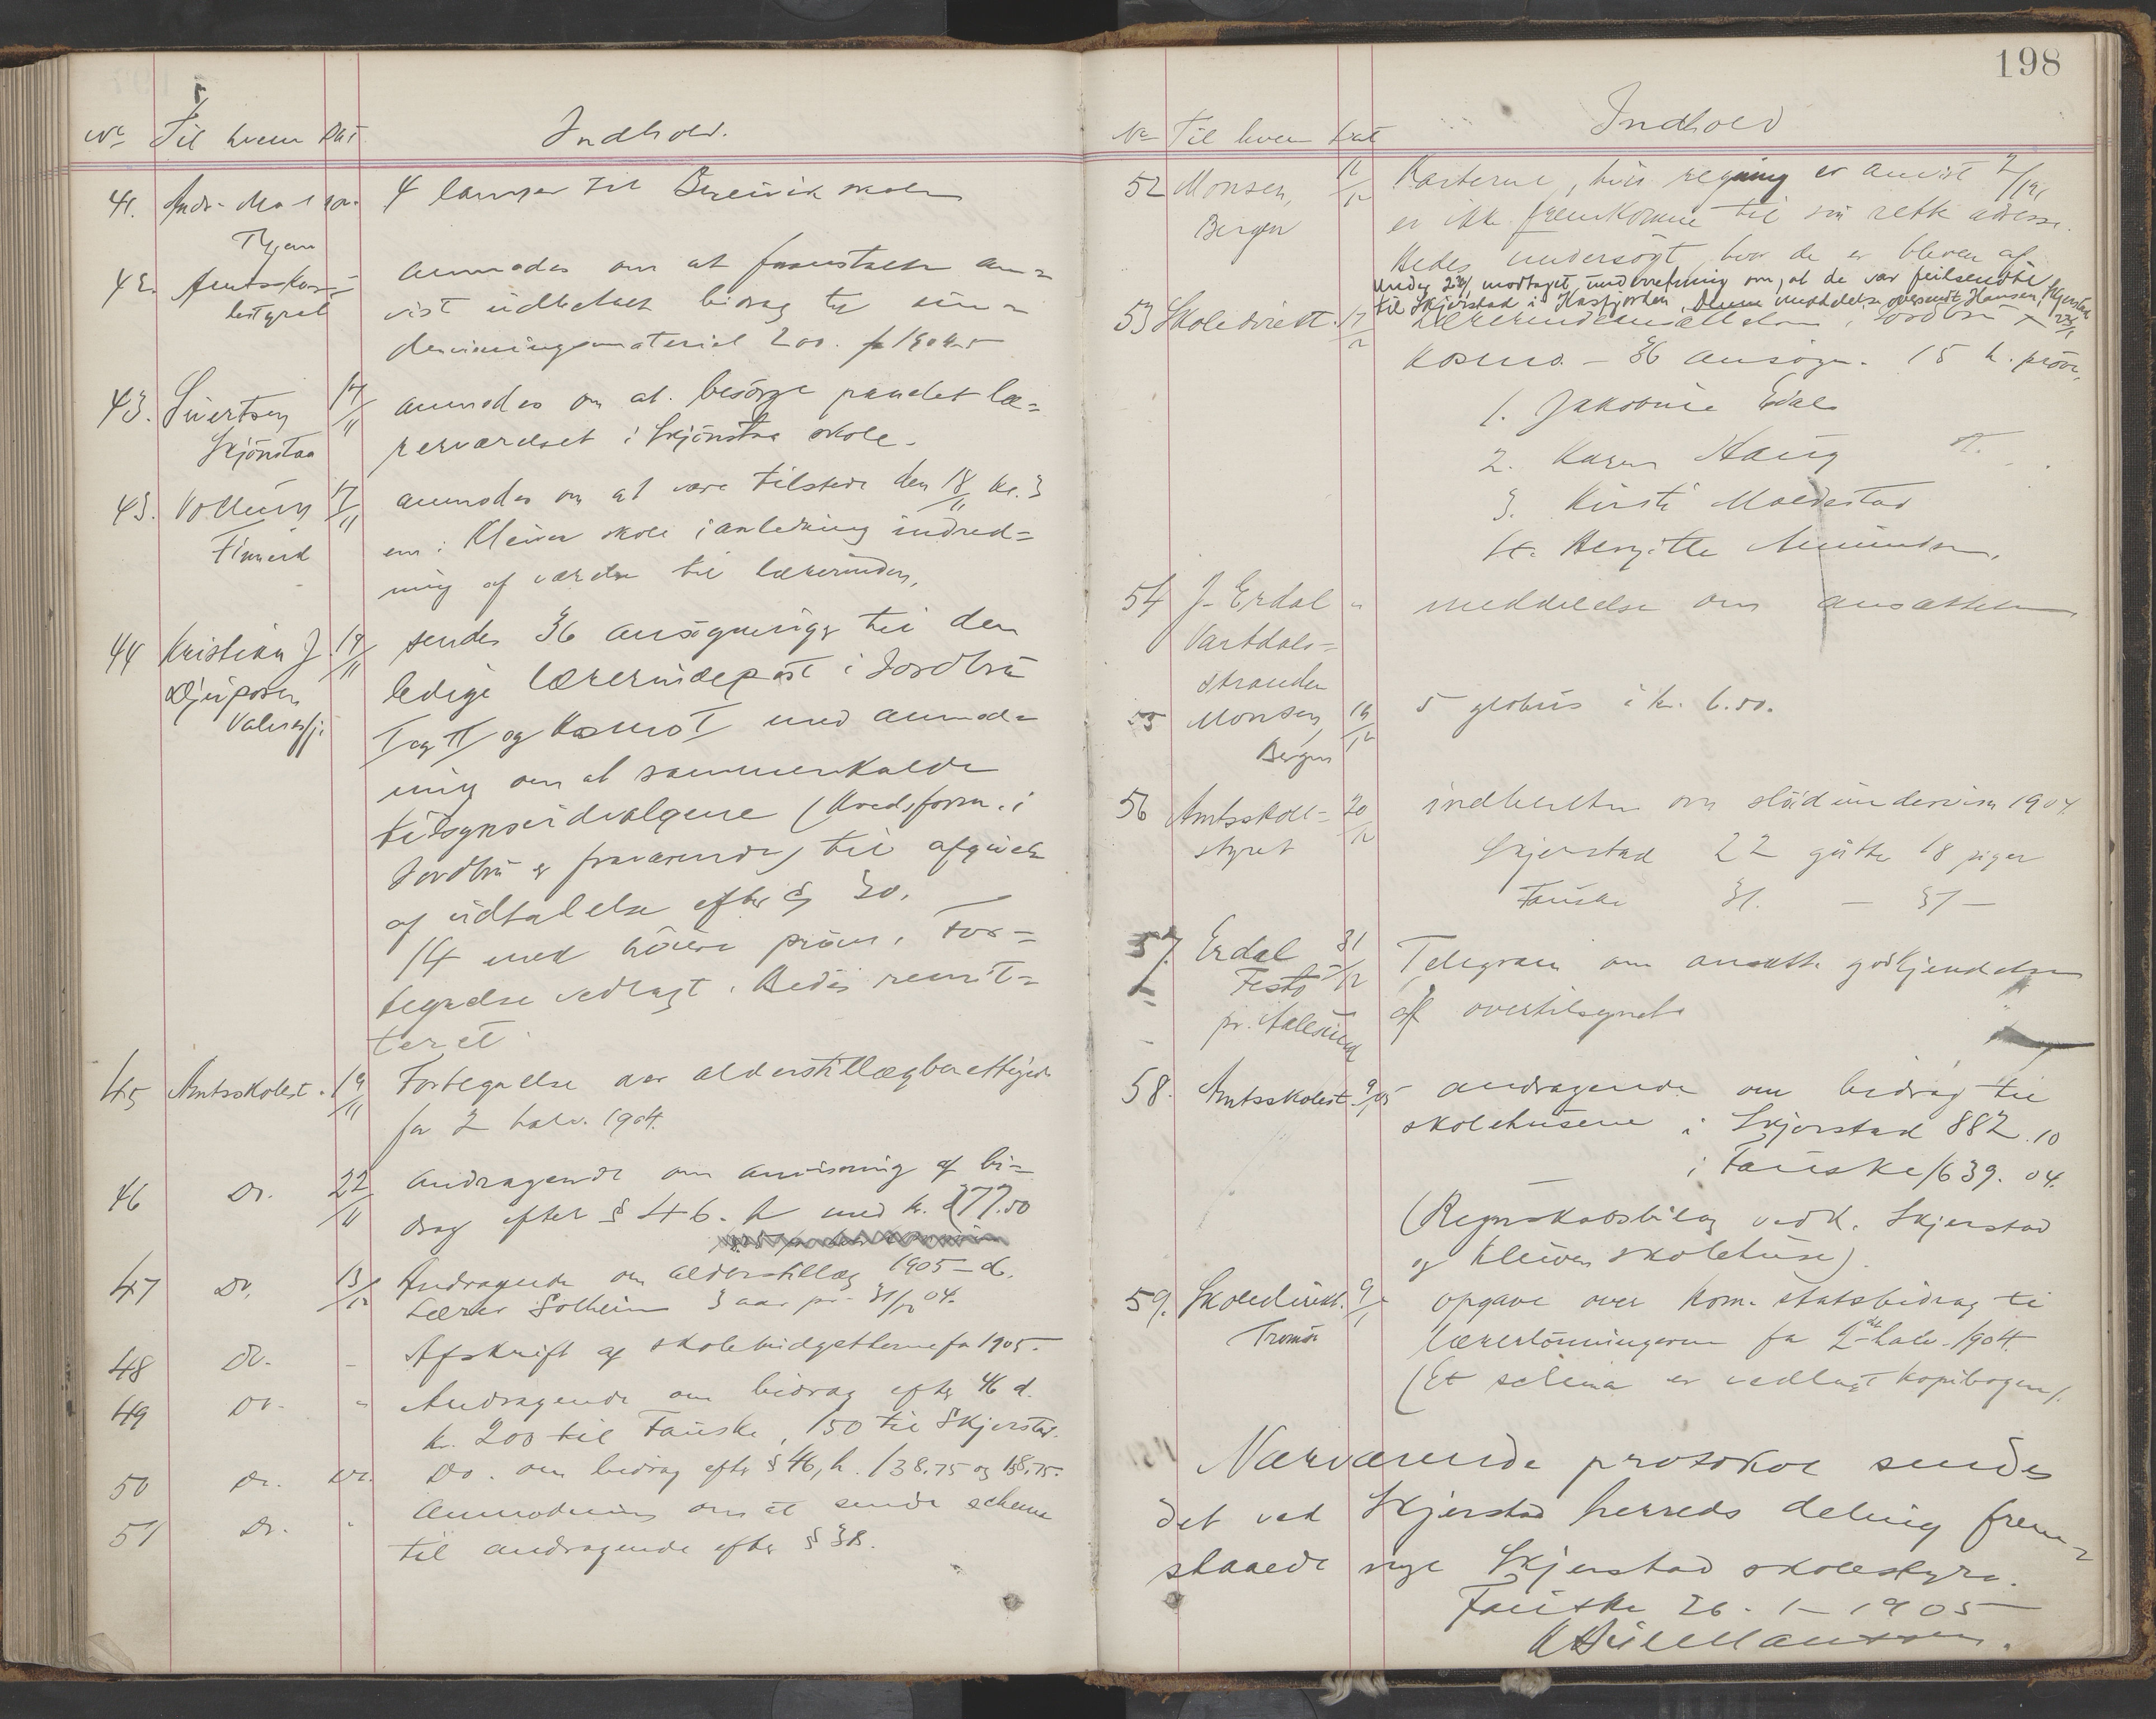 198
No Til hvem Dat. Indhold.
41. 4 lamper til Breivik skole
42. Amtsskole- anmodes om at
lestyret vist udbetalt bidrag til un-
dervisningsmateriel 200. for 1904-5
43. Sivertsen 17/11 anmodes om at besørge pandet læ-
Skjönstaa rerværelset i Skjönstaa skole.
43. 17/11 anmodes om at være tilstede den 18/11 kl. 3
em i Kleiven skole i anledning indred-
ning af værelse til lærerinden.
44 Kristian J. 19/11 sendes 36 ansøgninger til den
ledige lærerindepost i Jordbru
Valnesfj. I og II og Kosmo I med anmod-
ning om at sammenkalde
tilsynsudvalgene (Kredsform. i
Jordbru er fraværende) til afgivelse
af udtalelse efter § 30.
14 med höiere pröve. For-
tegnelse vedlagt. Bedes remit-
teret
45 Amtsskolest. 19/11 Fortegnelse over alderstillægberettigede
for 2 halv. 1904.
46 Do. 22/11 Andragende om anvisning af bi-
drag efter § 46. h med kr. 277.50
47 Do. 13/12 Andragende om alderstillæg 1905 - d.
Lærer Solheim 3 aar pr. 31/12 04.
48 Do. - Afskrift af skolebudgetterne for 1905.
49 Do. " Andragende om bidrag efter 46 d.
kr. 200 til Fauske, 150 til Skjerstad.
50 Do. Do. Do. om bidrag efter § 46, h. 138.75 og 138.75.
51 Do. " Anmodning om at sende schema
til andragende efter § 38.
No Til hvem Dat Indhold
52 Monsen, 12/12 Karterne, hvis regning er anvist
Bergen er ikke fremkomne til sin rette adresse.
Bedes undersøgt, hvor de er bleven af
modtaget underretning om, at de var feilsendte
til Skjerstad i Denne meddelelse oversendt Hansen, Skjerstad
53 Skoledirekt. 17/12 i Jordbru
Kosmo - 36 ansøgn. 15 h. pröve,
1. Jakobine Erdal
2. Karen Haug
3. Kirsti Moldestad
4. Bergitte Amundsen.
54 J. Erdal " meddelelse om ansættelsen
Vartdals-
stranden
55 Monsen, 19/12 5 globus á kr. 6.50.
Bergen
56 Amtsskole- 20/12 indberetn. om slöidundervisn 1904.
styret Skjerstad 22 gutter 18 piger
Fauske 31. — 31 —
57. Erdal 31/12 Telegram om ansætt. godkjendelse
Festö af overtilsynet
pr. Aalesund
58. Amtsskolest. 9/1 05 andragende om bidrag til
skolehusene i Skjerstad 882.10
— i Fauske 1639.04.
(Regnskabsbilag vedk. Skjerstad
og Kleiven skolehuse).
59. Skoledirekt. 9/1 Opgave over kom. statsbidrag til
Tromsö lærerlønningerne for 2det halv. 1904.
(Et schema er vedlagt kopibogen).
Nærværende protokol sendes
det ved Skjerstad herreds deling frem-
staaede nye Skjerstad skolestyre.
Fauske 26 - 1 - 1905